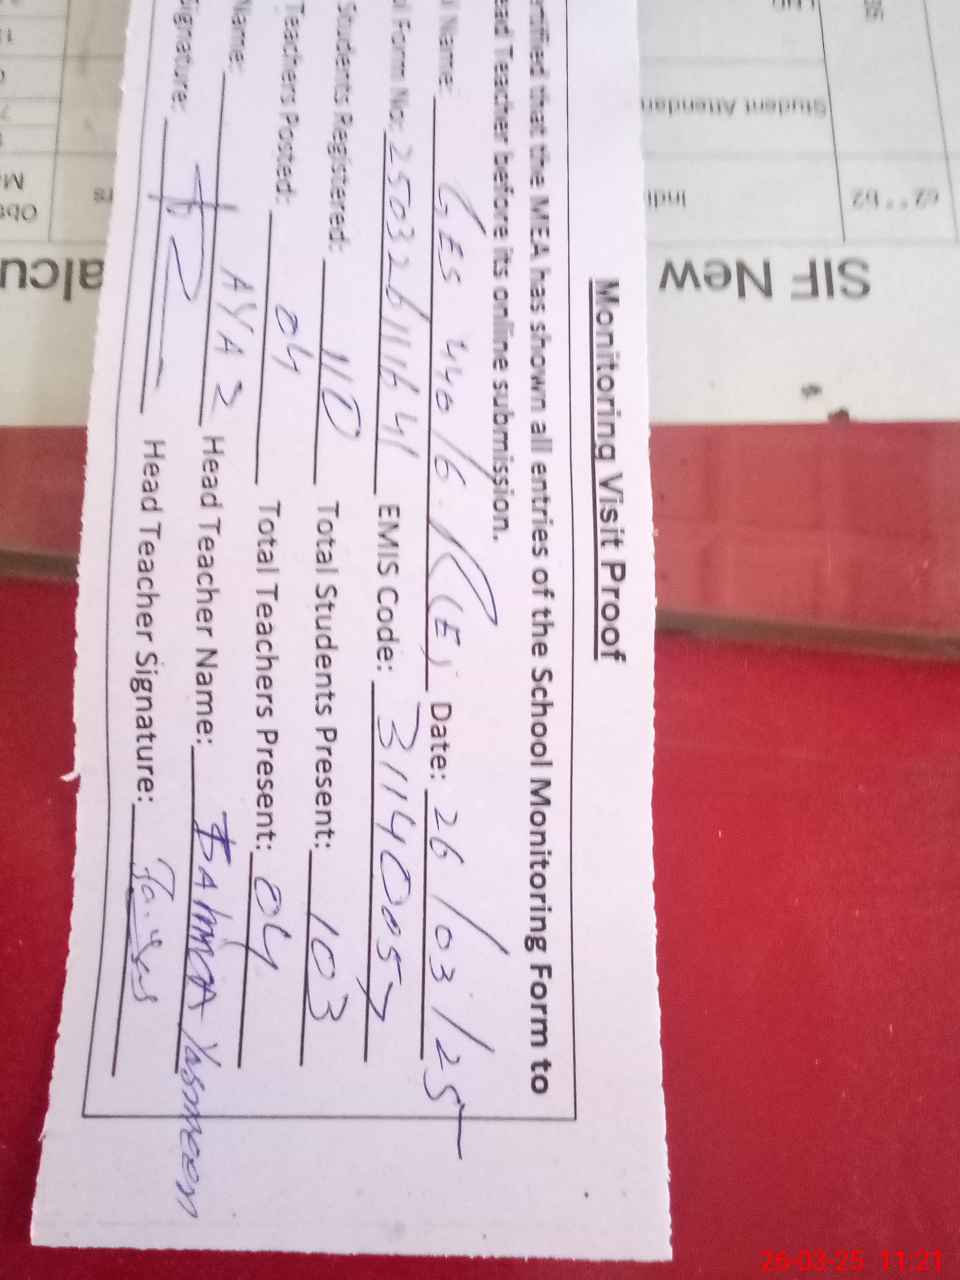 Monitoring Visit Proof
ertified that the MEA has shown all entries of the School Monitoring Form to
ead Teacher before its online submission.
l Name: GES 446/6.R(E) Date: 26/03/25
l Form No: 25032611641 EMIS Code: 31140057
Students Registered: 110 Total Students Present: 103
Teachers Posted: 04 Total Teachers Present: 04
Name: AYAZ Head Teacher Name: Yasmeen
Signature: Head Teacher Signature:
SIF New
alcu
Indi
Student Attendan
Obs
26-03-25 11:21